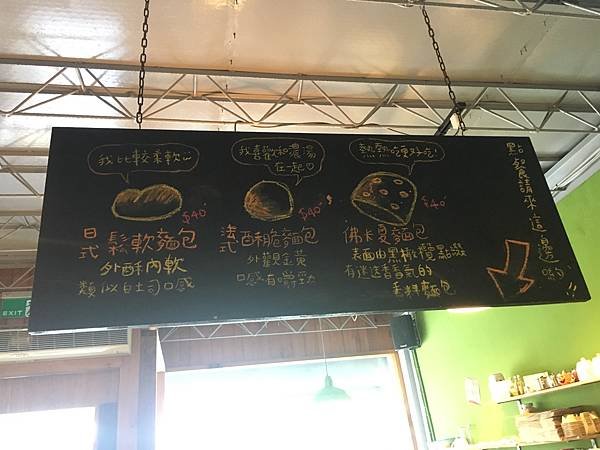 我比較柔軟
$40
日式鬆軟麵包
外酥內軟
類似白土司口感
我喜歡和濃湯
在一起♡
$40
法式酥脆麵包
外觀金黃
口感有嚼勁
熱熱吃更好吃!
$40
佛卡夏麵包
表面由黑橄欖點綴
有迷迭香香氣的
香料麵包
點餐請來這邊唷!!
EXIT